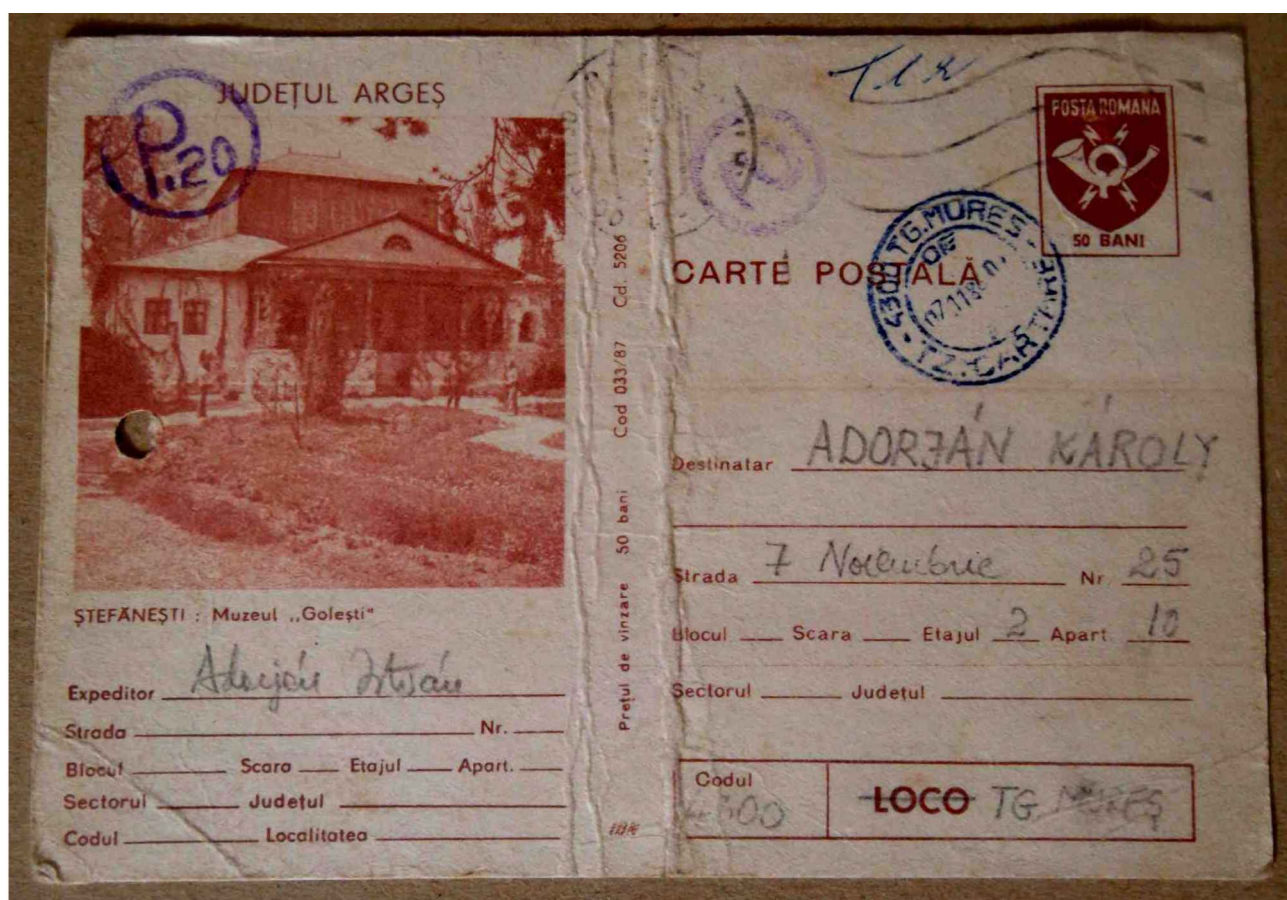 JUDEȚUL ARGEȘ
P.20
ȘTEFĂNEȘTI : Muzeul „Golești"
Expeditor Adorján István
Strada Nr.
Blocul Scara Etajul Apart.
Sectorul Județul
Codul Localitatea
Prețul de vînzare 50 bani Cod 033/87 Cd. 5206
POSTA ROMANA
50 BANI
CARTE POȘTALĂ
4300 TG. MUREȘ
Destinatar ADORJÁN KÁROLY
Strada 7 Noiembrie Nr 25
Blocul Scara Etajul 2 Apart 10
Sectorul Județul
Codul
4300
LOCO TG MUREȘ